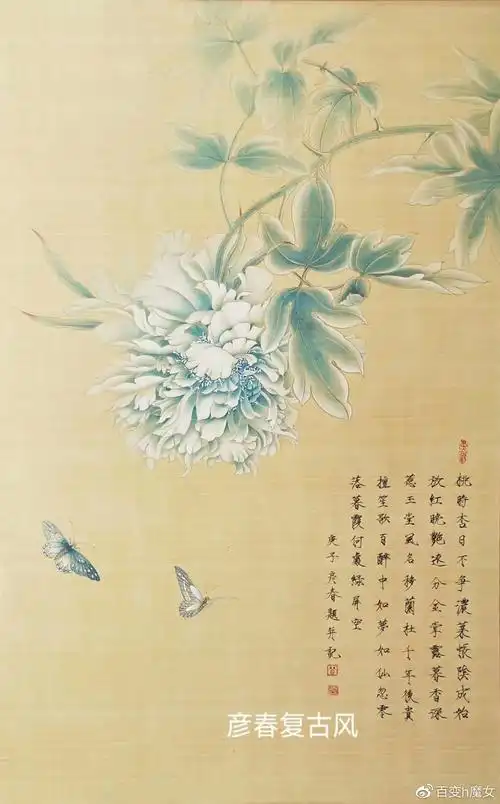 桃時杏日不爭濃葉帳陰成始
放紅曉艷遠分金掌露暮香深
惹玉堂風名移蘭杜千年後貴
擅笙歌百醉中如夢如仙忽零
落暮霞何處綠屏空
庚子彦春題并記
彦春复古风
@百变h魔女